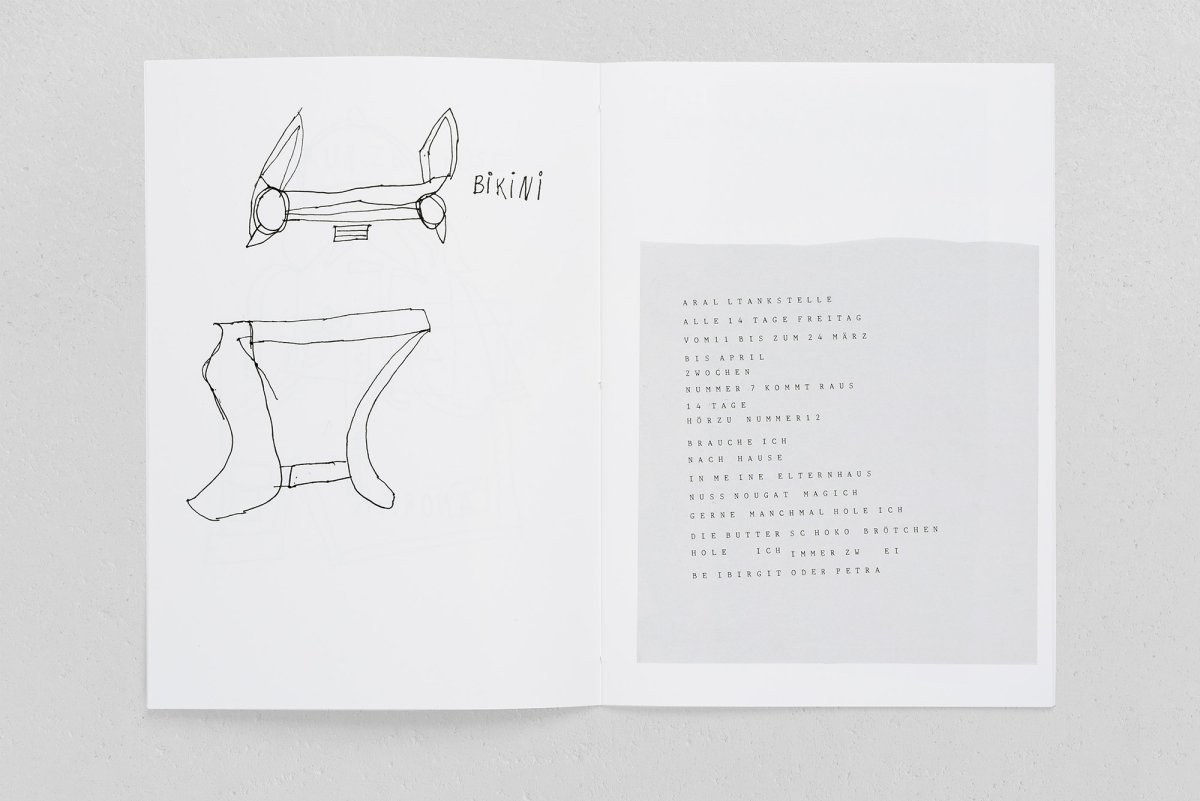 BiKiNi
ARAL LTANKSTELLE
ALLE 14 TAGE FREITAG
VOM11 BIS ZUM 24 MÄRZ
BIS APRIL
2WOCHEN
NUMMER 7 KOMMT RAUS
14 TAGE
HÖRZU NUMMER12
BRAUCHE ICH
NACH HAUSE
IN ME INE ELTERNHAUS
NUSS NOUGAT MAGICH
GERNE MANCHMAL HOLE ICH
DIE BUTTER SC HOKO BRÖTCHEN
HOLE ICH IMMER ZW EI
BE IBIRGIT ODER PETRA